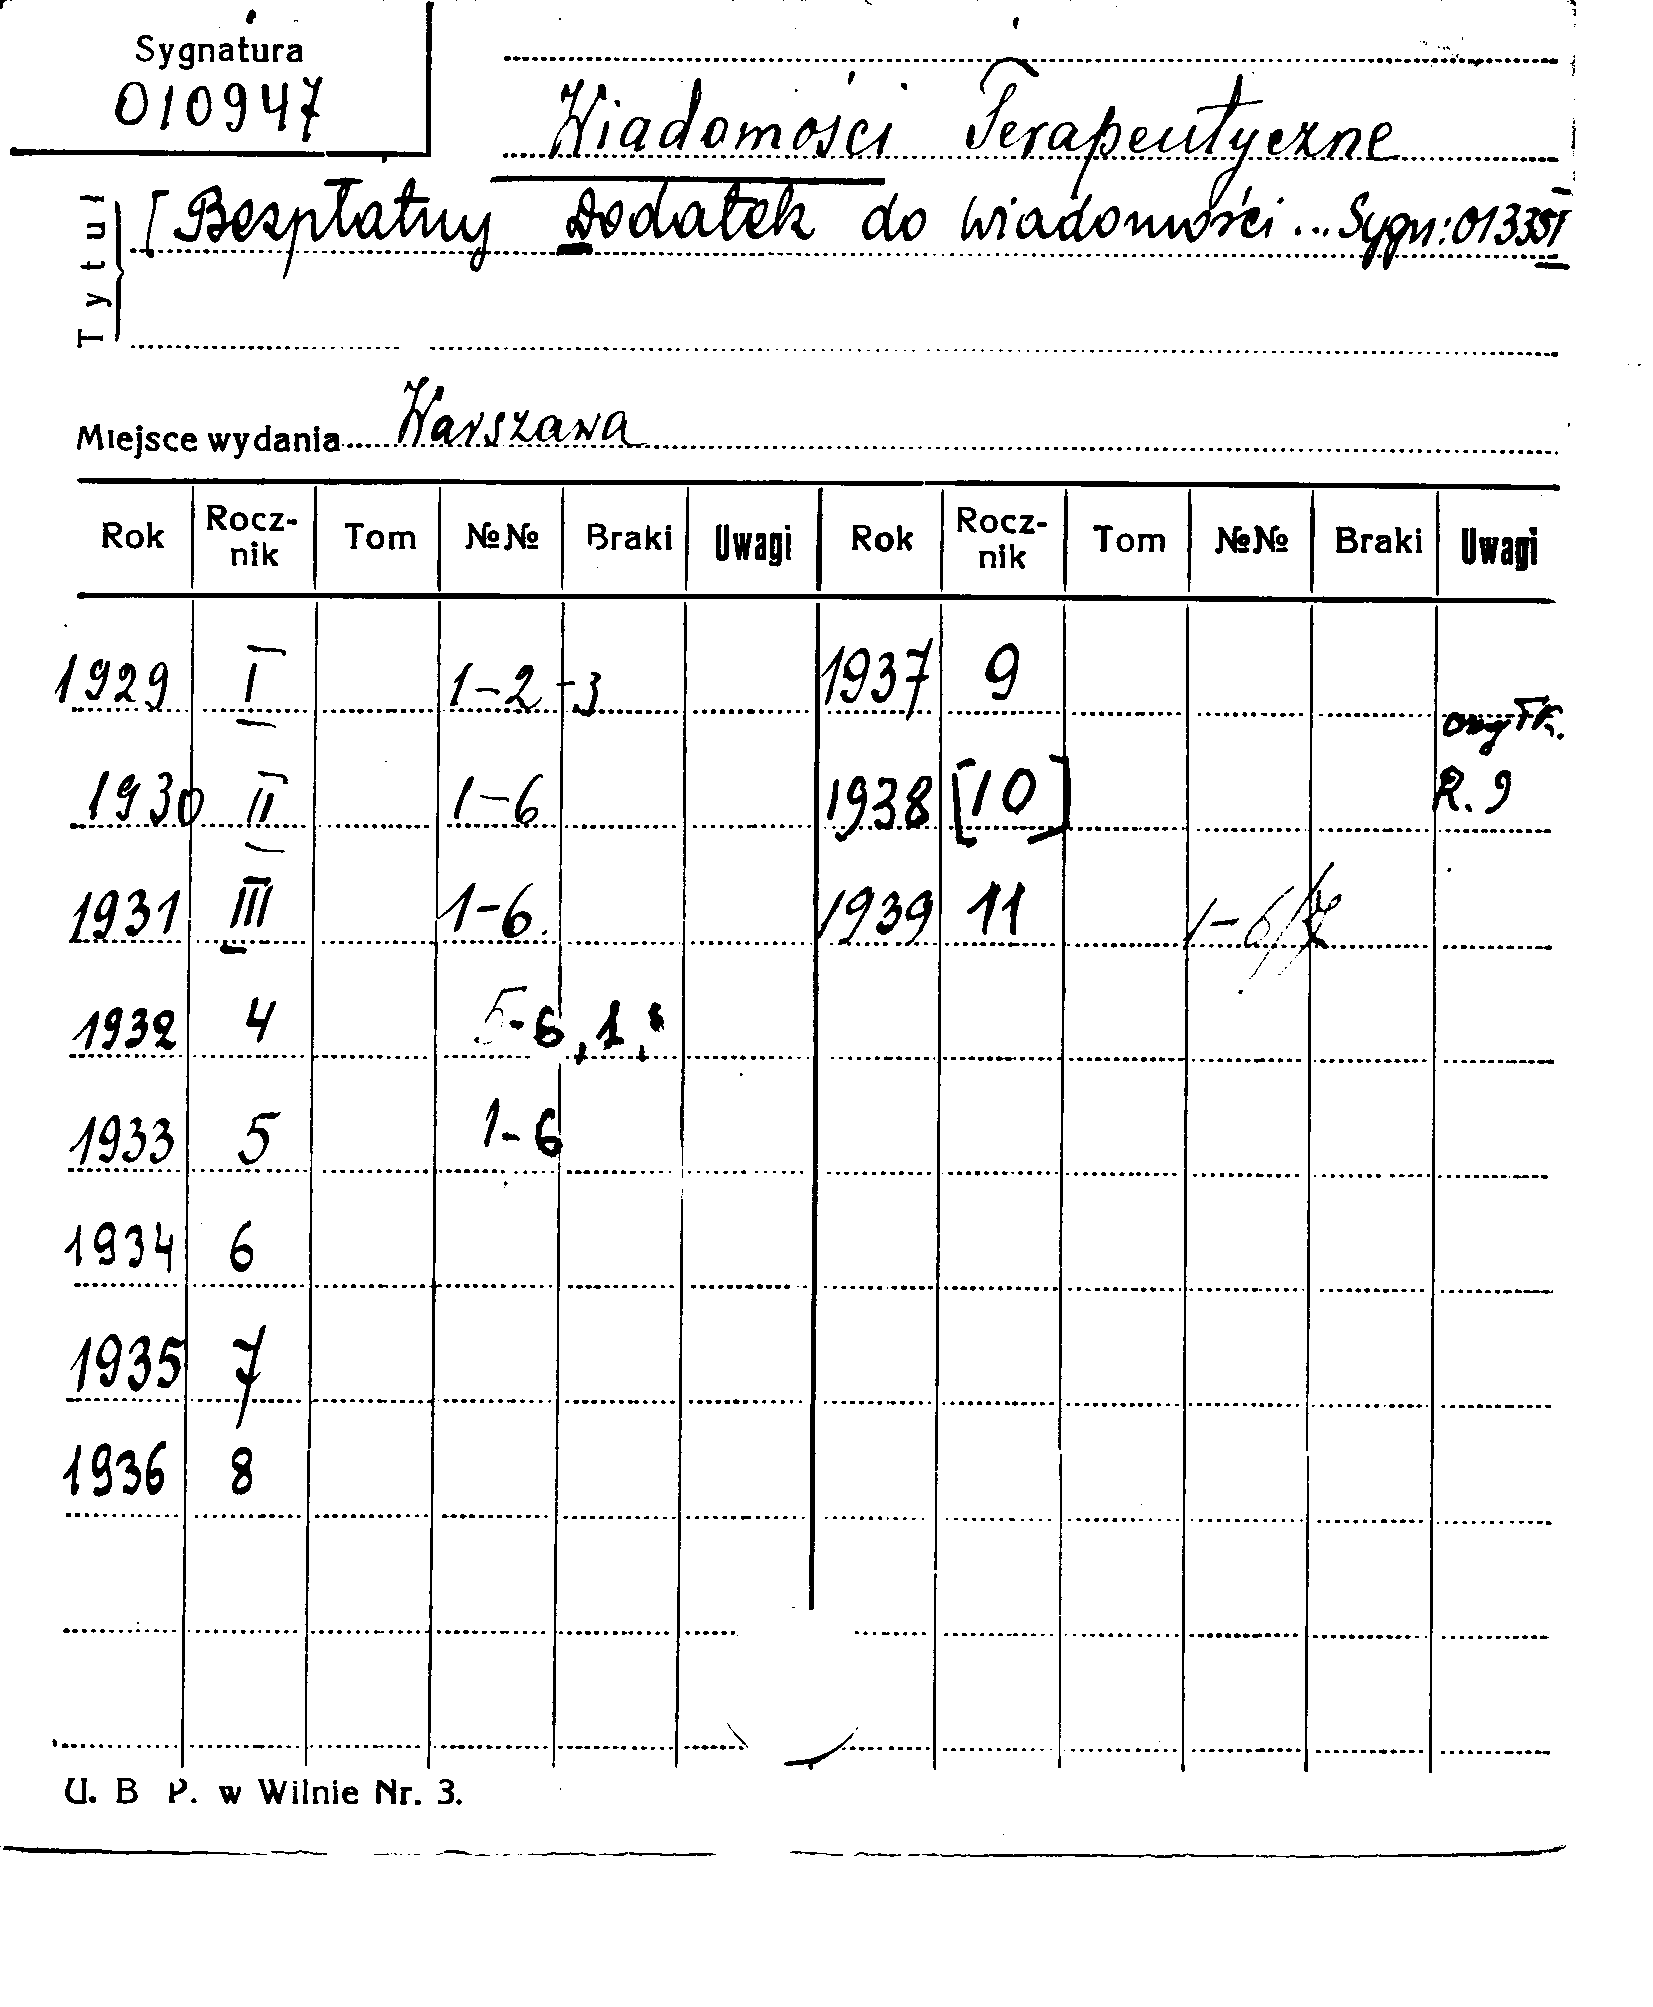 Sygnatura
010947
Wiadomości Terapeutyczne
Tytuł [Bezpłatny Dodatek do Wiadomości... Sygn: 013351
Miejsce wydania Warszawa
Rok Rocz-nik Tom №№ Braki Uwagi Rok Rocz-nik Tom №№ Braki Uwagi
1929 I 1-2-3 1937 9
1930 II 1-6 1938 [10] R. 9
1931 III 1-6. 1939 11 1-6/7
1932 4 5-6, 1,
1933 5 1-6
1934 6
1935 7
1936 8
U. B P. w Wilnie Nr. 3.